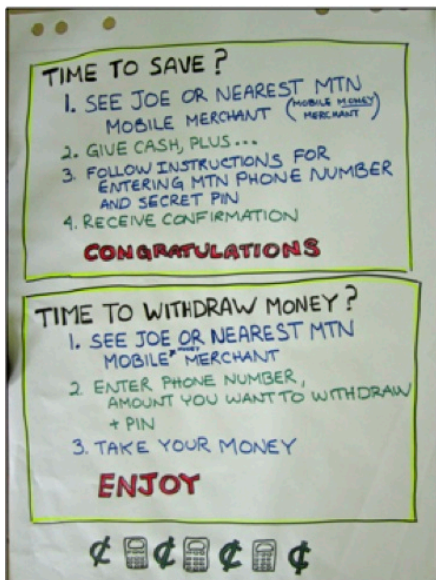 TIME TO SAVE?
1. SEE JOE OR NEAREST MTN
MOBILE MERCHANT (MOBILE MONEY MERCHANT)
2. GIVE CASH, PLUS...
3. FOLLOW INSTRUCTIONS FOR
ENTERING MTN PHONE NUMBER
AND SECRET PIN
4. RECEIVE CONFIRMATION
CONGRATULATIONS
TIME TO WITHDRAW MONEY?
1. SEE JOE OR NEAREST MTN
MOBILE MONEY MERCHANT
2. ENTER PHONE NUMBER,
AMOUNT YOU WANT TO WITHDRAW
+ PIN
3. TAKE YOUR MONEY
ENJOY
₵ ₵ ₵ ₵